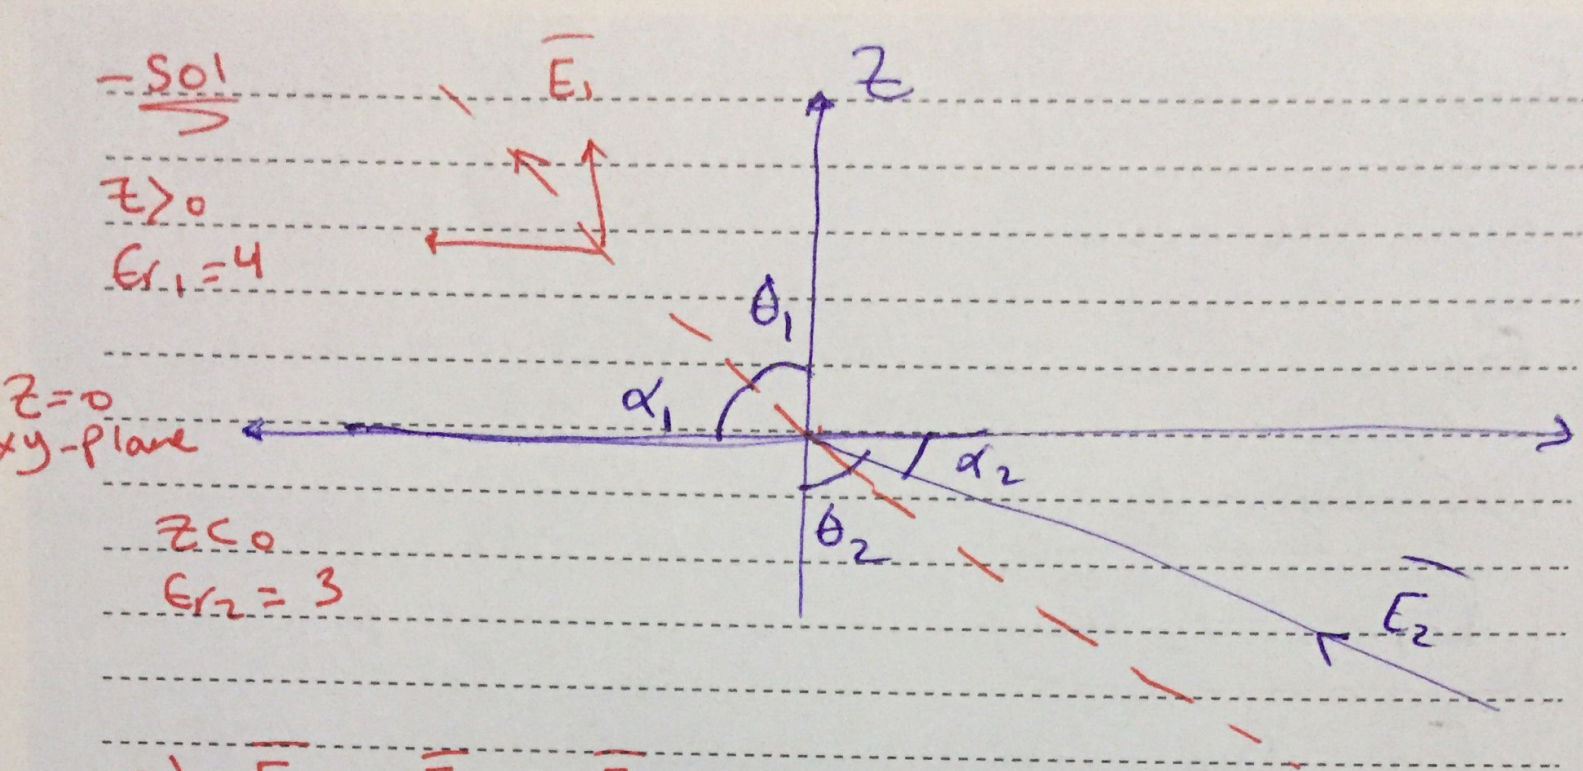 - Sol
E̅₁
Z
Z>0
Єr₁=4
θ₁
Z=0
xy-plane
α₁
α₂
Z<0
Єr₂= 3
θ₂
E̅₂